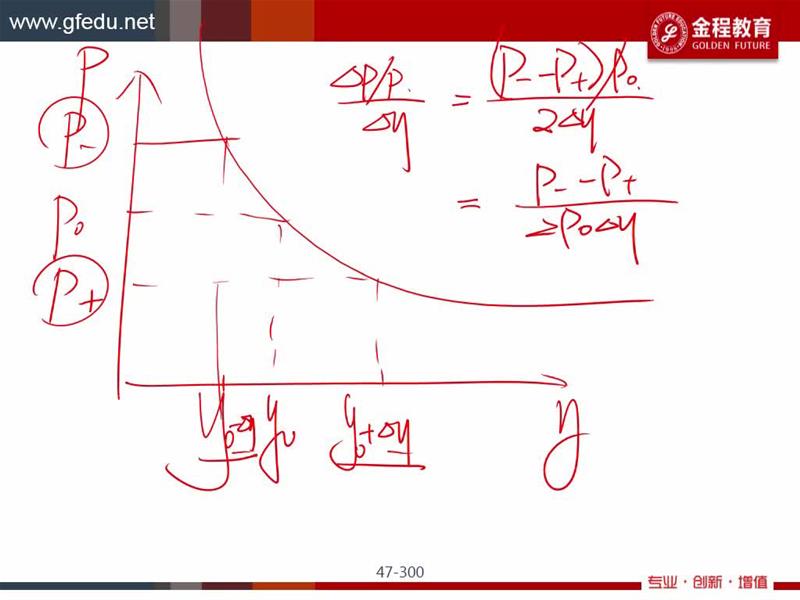 www.gfedu.net
金程教育
GOLDEN FUTURE
P
P-
P0
P+
ΔP/P.
Δy
= (P- - P+)/P0.
2Δy
= P- - P+
2P0Δy
y0-Δy y0 y0+Δy y
47-300
专业·创新·增值